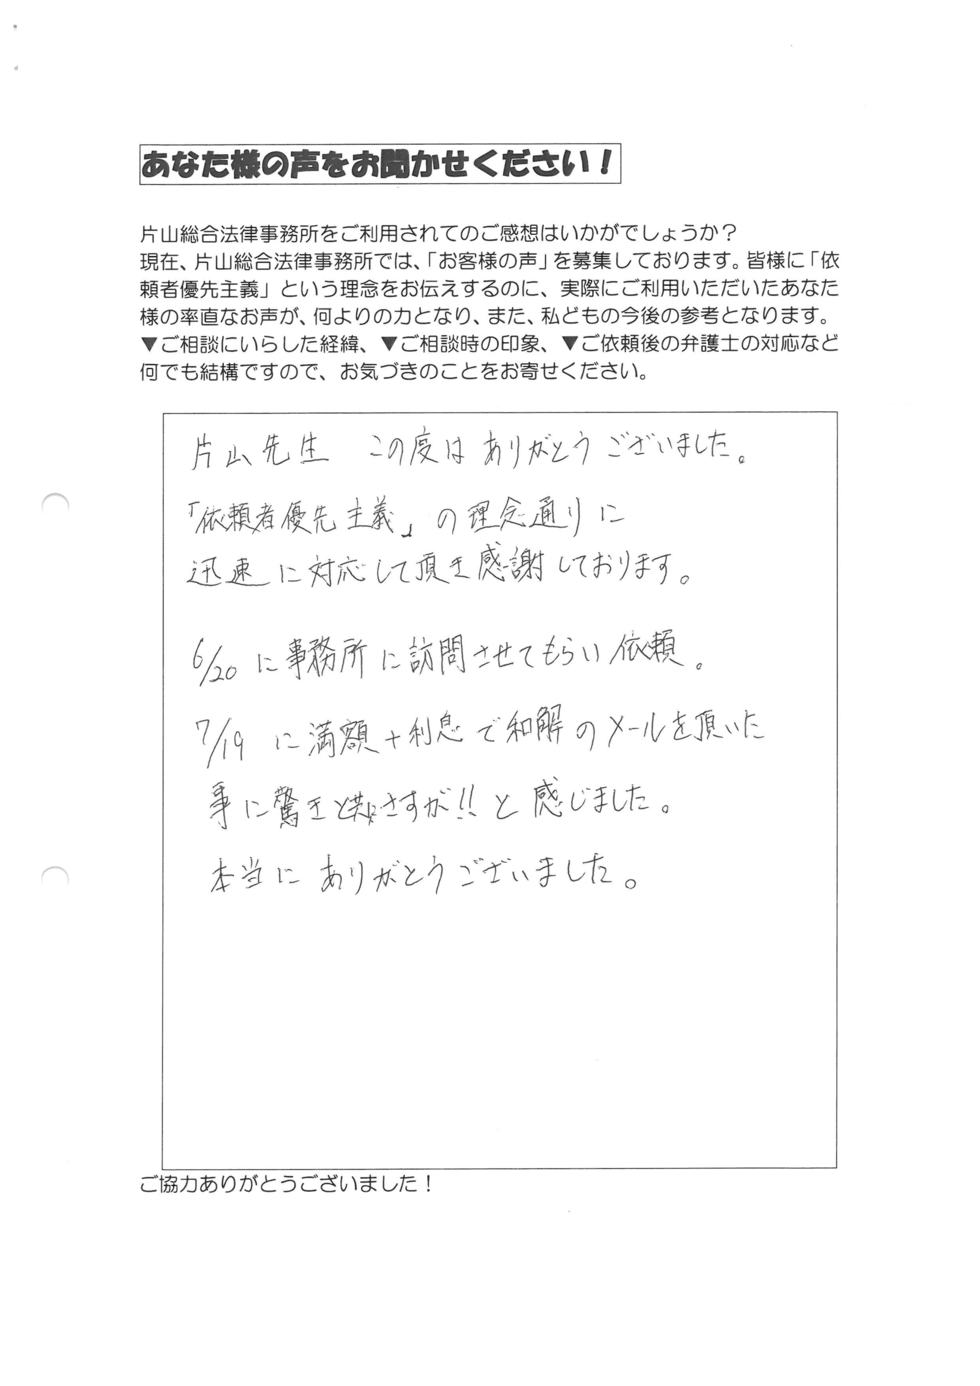 あなた様の声をお聞かせください！
片山総合法律事務所をご利用されてのご感想はいかがでしょうか？
現在、片山総合法律事務所では、「お客様の声」を募集しております。皆様に「依
頼者優先主義」という理念をお伝えするのに、実際にご利用いただいたあなた
様の率直なお声が、何よりの力となり、また、私どもの今後の参考となります。
▼ご相談にいらした経緯、▼ご相談時の印象、▼ご依頼後の弁護士の対応など
何でも結構ですので、お気づきのことをお寄せください。
片山先生　この度は ありがとうございました。
「依頼者優先主義」の理念通りに
迅速に対応して頂き感謝しております。
6/20 に事務所に訪問させてもらい依頼。
7/19 に満額＋利息で和解のメールを頂いた
事に驚きと さすが!!と感じました。
本当に ありがとうございました。
ご協力ありがとうございました！